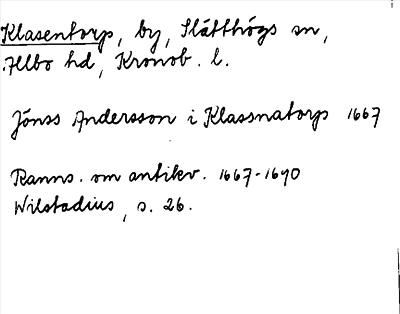 Klasentorp, by, Slätthögs sn,
Allbo hd, Kronob. l.
Jönss Andersson i Klassnatorp 1667
Ranns. om antikv. 1667-1690
Wilstadius, s. 26.